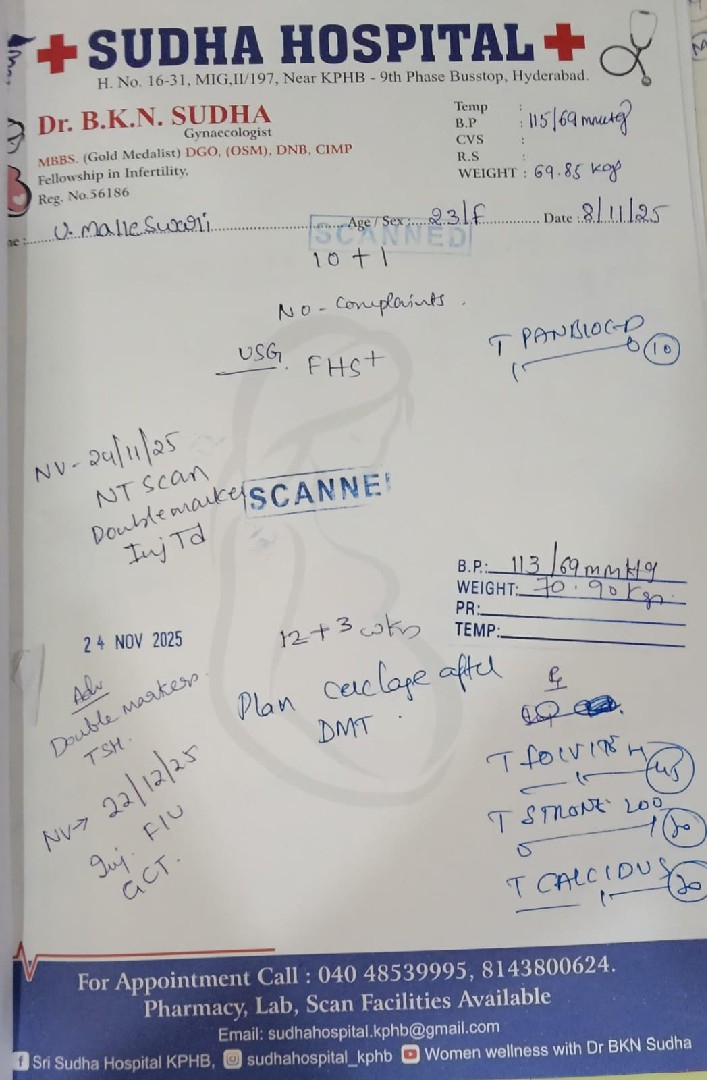 SUDHA HOSPITAL
H. No. 16-31, MIG,II/197, Near KPHB - 9th Phase Busstop, Hyderabad.
Dr. B.K.N. SUDHA
Gynaecologist
MBBS. (Gold Medalist) DGO, (OSM), DNB, CIMP
Fellowship in Infertility,
Reg. No.56186
Temp :
B.P : 115/69 mmHg
CVS :
R.S :
WEIGHT : 69.85 kgs
U. Malleswari Age / Sex : 23/F Date : 8/11/25
SCANNED
10 + 1
NO - Complaints.
USG. FHS+
T PANBLOC-D
10
NV - 24/11/25
NT SCAN
Double marker
Inj Td
SCANNE
B.P.: 113/69 mmHg
WEIGHT: 70.90 kgs.
PR:
TEMP:
24 NOV 2025
12 + 3 wks
Adv
Double markers.
TSH.
Plan cerclage after
DMT.
NV→ 22/12/25
Inj. FIU
GCT.
T
45
T STRONE 200
30
T CALCIDUS
30
For Appointment Call : 040 48539995, 8143800624.
Pharmacy, Lab, Scan Facilities Available
Email: sudhahospital.kphb@gmail.com
Sri Sudha Hospital KPHB, sudhahospital_kphb Women wellness with Dr BKN Sudha